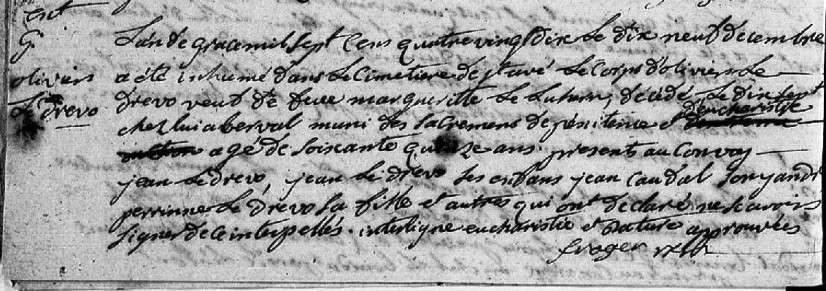 G
olivier
Le drevo
L'an de grace mil sept Cens quatre vingt dix le dix neuf decembre
a été inhumé dans Le Cimetiere de st avé Le Corps d'olivier Le
Drevo veuf de feue marguerite Le Luhern, decedé Le dix sept
chez lui a berval muni des sacremens de pénitence et d'eucharistie
agé de soixante quinze ans. presents au Convoy
jean Le drevo, jean Le drevo Ses enfans jean Caudal Son gendre
perrinne Le Drevo Sa fille et autres qui ont déclaré ne Scavoir
signer de ce interpellés. interligne eucharistie et rature approuvées